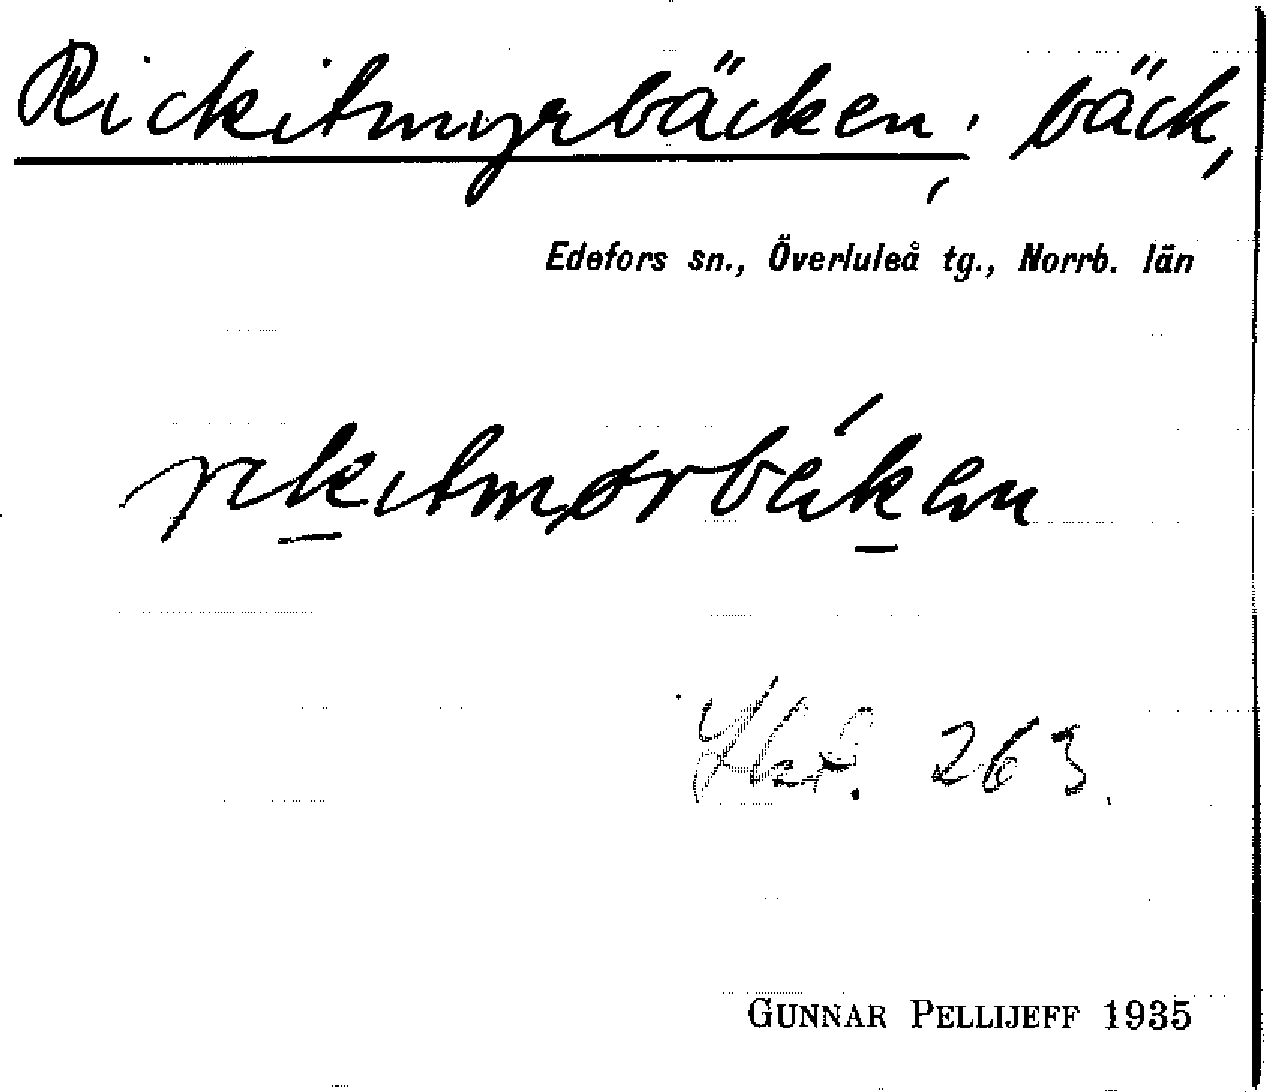 Rickitmyrbäcken, bäck,
Edefors sn., Överluleå tg., Norrb. län
263.
GUNNAR PELLIJEFF 1935